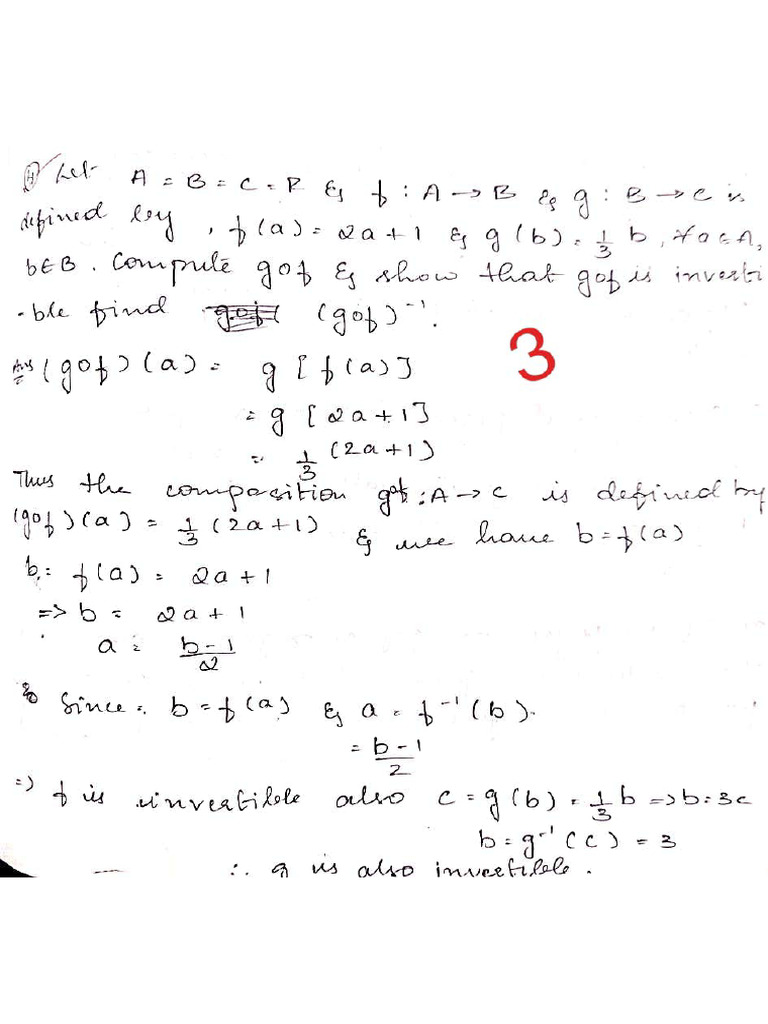 (4) Let A = B = C = R & f : A → B & g : B → C is
defined by, f(a) = 2a + 1 & g(b) = 1/3 b, ∀ a ∈ A,
b ∈ B. Compute gof & show that gof is inverti
-ble find (gof)⁻¹.
Ans (gof)(a) = g[f(a)]
3
= g[2a+1]
= 1/3 (2a+1)
Thus the composition gof : A → C is defined by
(gof)(a) = 1/3 (2a+1) & we have b = f(a)
b = f(a) = 2a + 1
=> b = 2a + 1
a = b-1/2
Since b = f(a) & a = f⁻¹(b).
= b-1/2
=> f is invertible also c = g(b) = 1/3 b => b = 3c
b = g⁻¹(c) = 3
∴ g is also invertible.